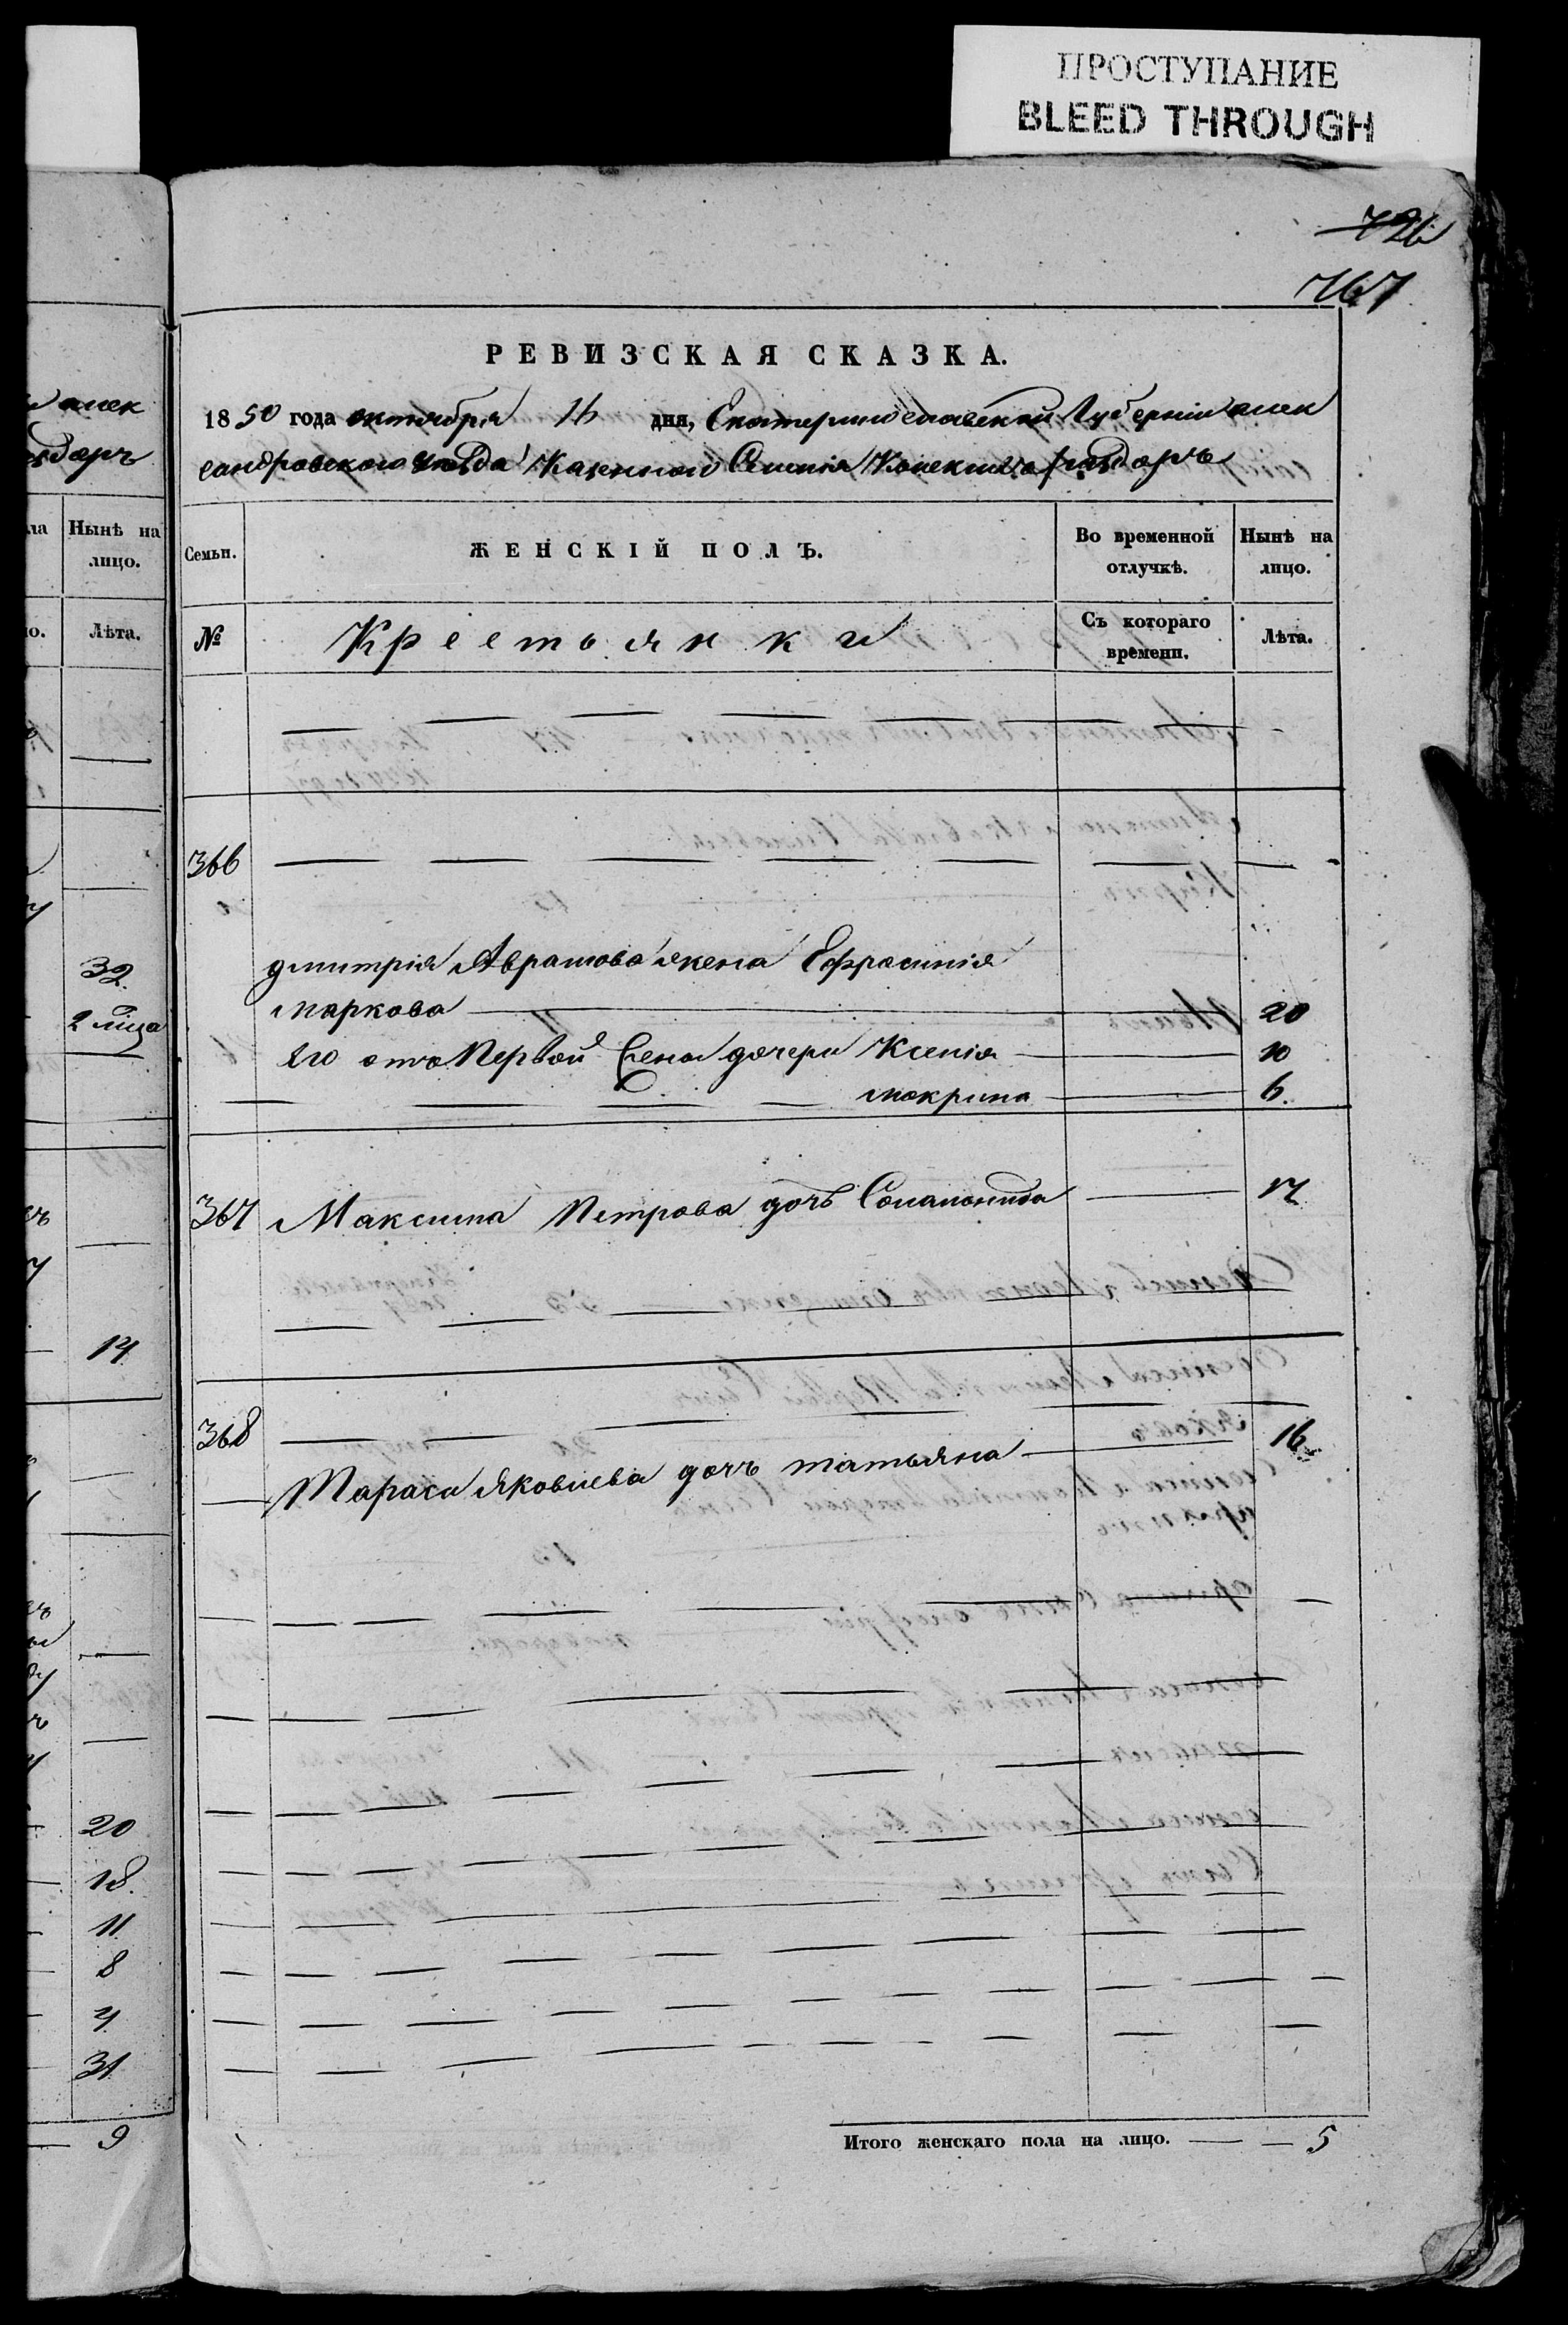 ПРОСТУПАНИЕ
BLEED THROUGH
726
767
РЕВИЗСКАЯ СКАЗКА.
1850 года октября 16 дня, Екатеринославской Губерніи алек
сандровского уезда Казенной Селенія Конскихъ раздоръ
Семьи.
ЖЕНСКІЙ ПОЛЪ.
Во временной отлучкѣ.
Нынѣ на лицо.
№
Крестьянки
Съ котораго времени.
Лѣта.
366
дмитрія Аврамова жена Ефросинія
маркова 20
Его отъ Первой жены дочери Ксенія 10
мокрина 6.
367 Максима Петрова дочь Соломонида 17
368
Тараса Яковлева дочь татьяна 16
Итого женскаго пола на лицо. 5
алек
здоръ
Нынѣ на
лицо.
Лѣта.
32
2 лица
14
20
18.
11
8
4
31
9